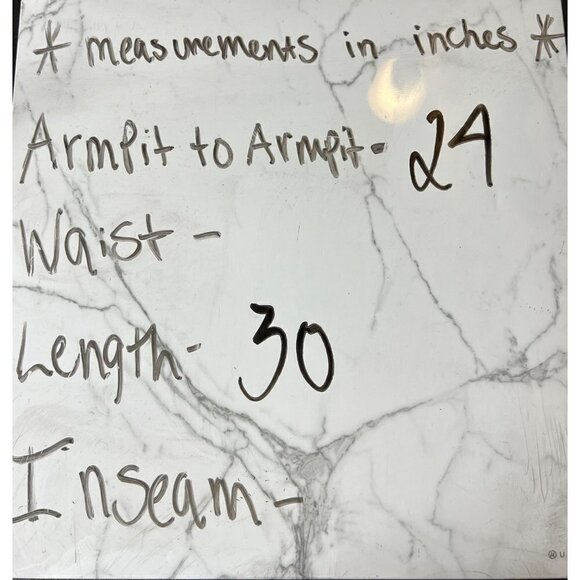 * measurements in inches *
Armpit to Armpit - 24
Waist -
Length - 30
Inseam -